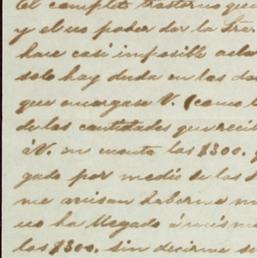 el completo trastorno que
y el no poder dar la Sra.
hace casi imposible acla
solo hay duda en las do
que encargase V. (como l
de las cantidades que reci
á V. en cuenta los $300. q
gado por medio de los
me avisan haberme m
no ha llegado á mis ma
los $300. sin decirme se